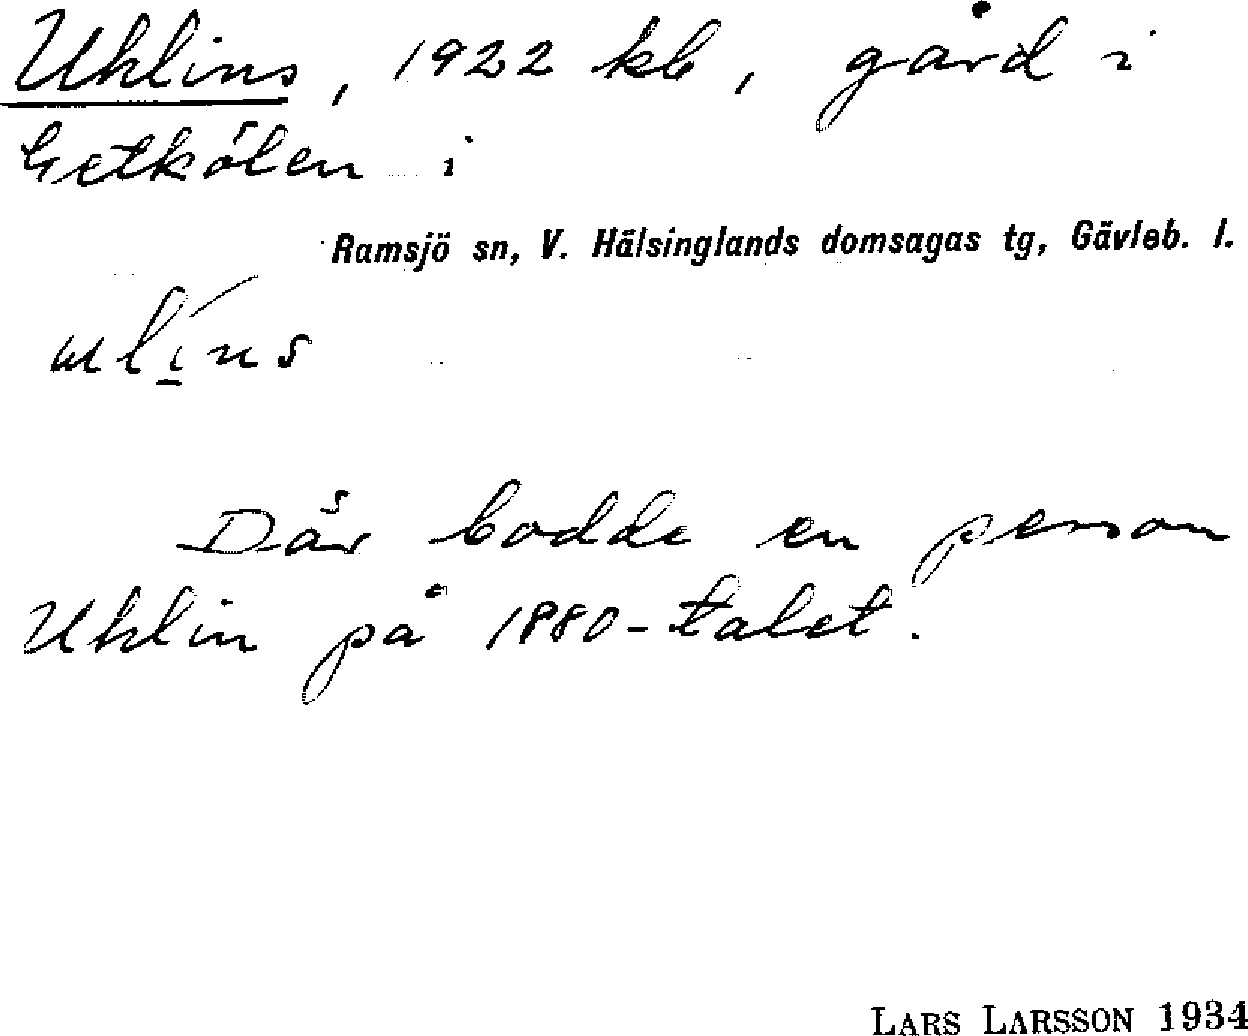 Uhlins, 1922 kb, gård i
Getkölen i
Ramsjö sn, V. Hälsinglands domsagas tg, Gävleb. l.
ulíns
Där bodde en person
Uhlin på 1880-talet.
LARS LARSSON 1934